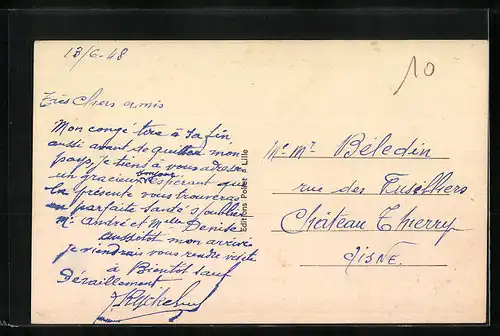 13/6-48
10
Très Chers amis
Mon congé tire à sa fin
aussi avant de quitter mon
pays, je tiens à vous adresser
un gracieux bonjour Espérant que
la présente vous trouveras
en parfaite Santé s/oublier
Mr André et Melle Denise
aussitôt mon arrivée
je viendrais vous rendre visite
à Bientôt sauf
Déraillement
Editions Pollet à Lille
Me Mr Béledin
rue des Fusilliers
Château Thierry
Aisne.